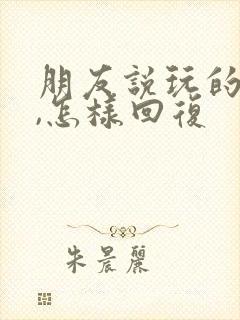 朋友說玩的
,怎樣回復
朱晨麗